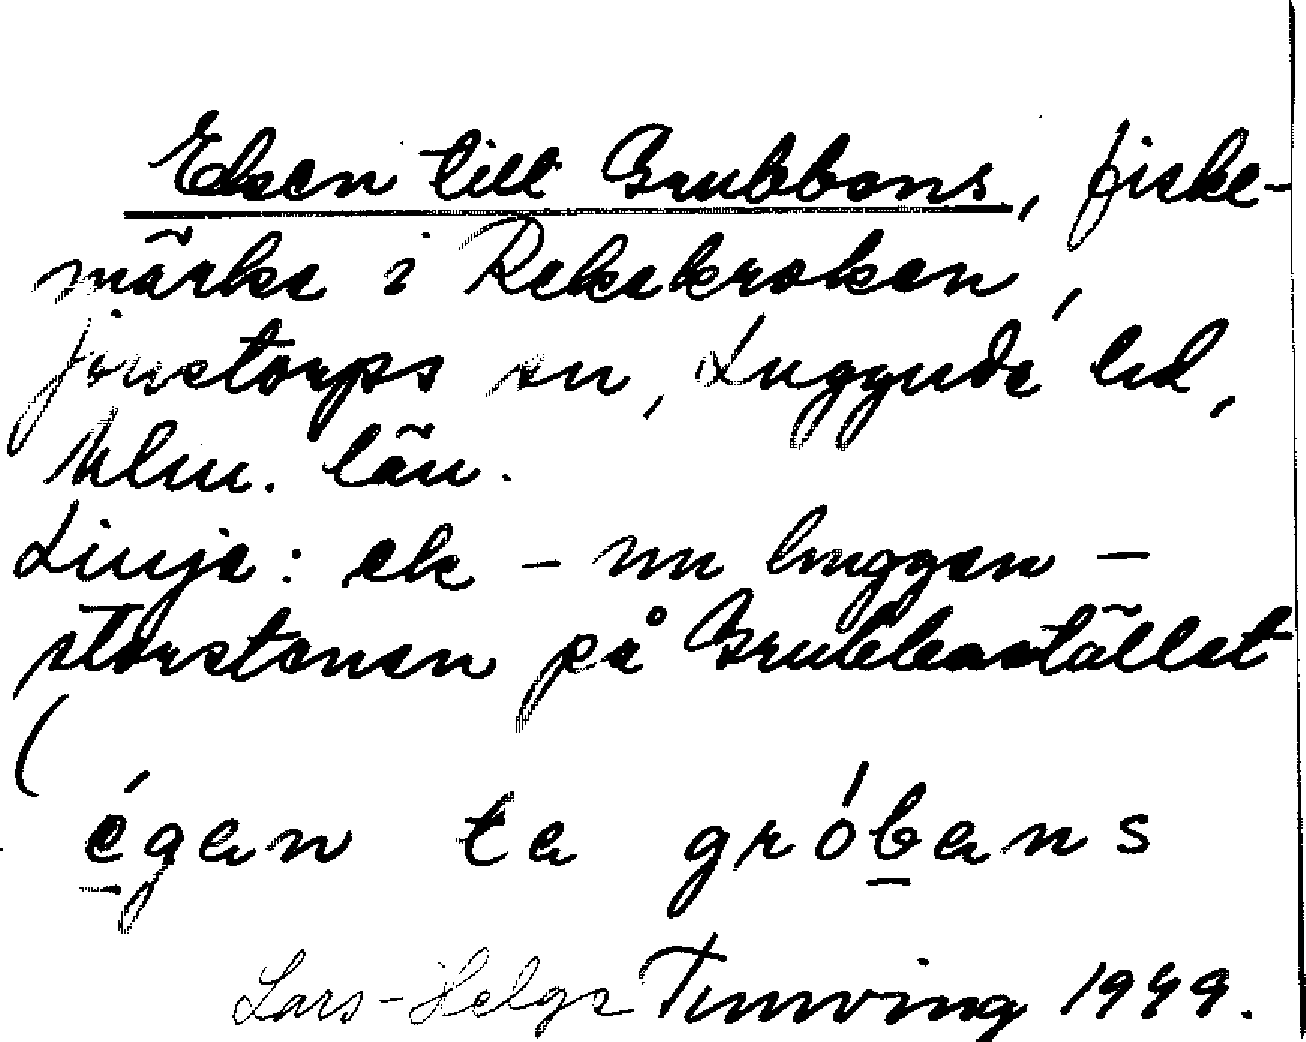 Eken till Grubbens, fiske-
märke i Rekekroken,
Jonstorps sn, Luggude hd,
Mlm. län.
Linje: ek – nu huggen –
storstenen på Grubbastället
(
égan ta gróbans
Lars-Helge Tunving 1949.